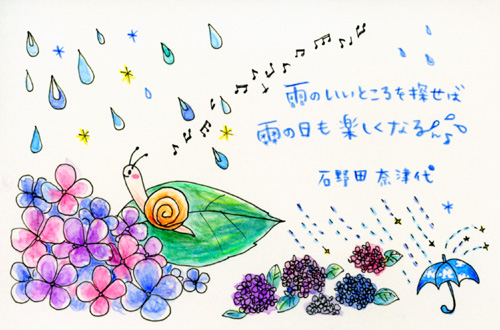 雨のいいところを探せば
雨の日も楽しくなるん♪
石野田奈津代